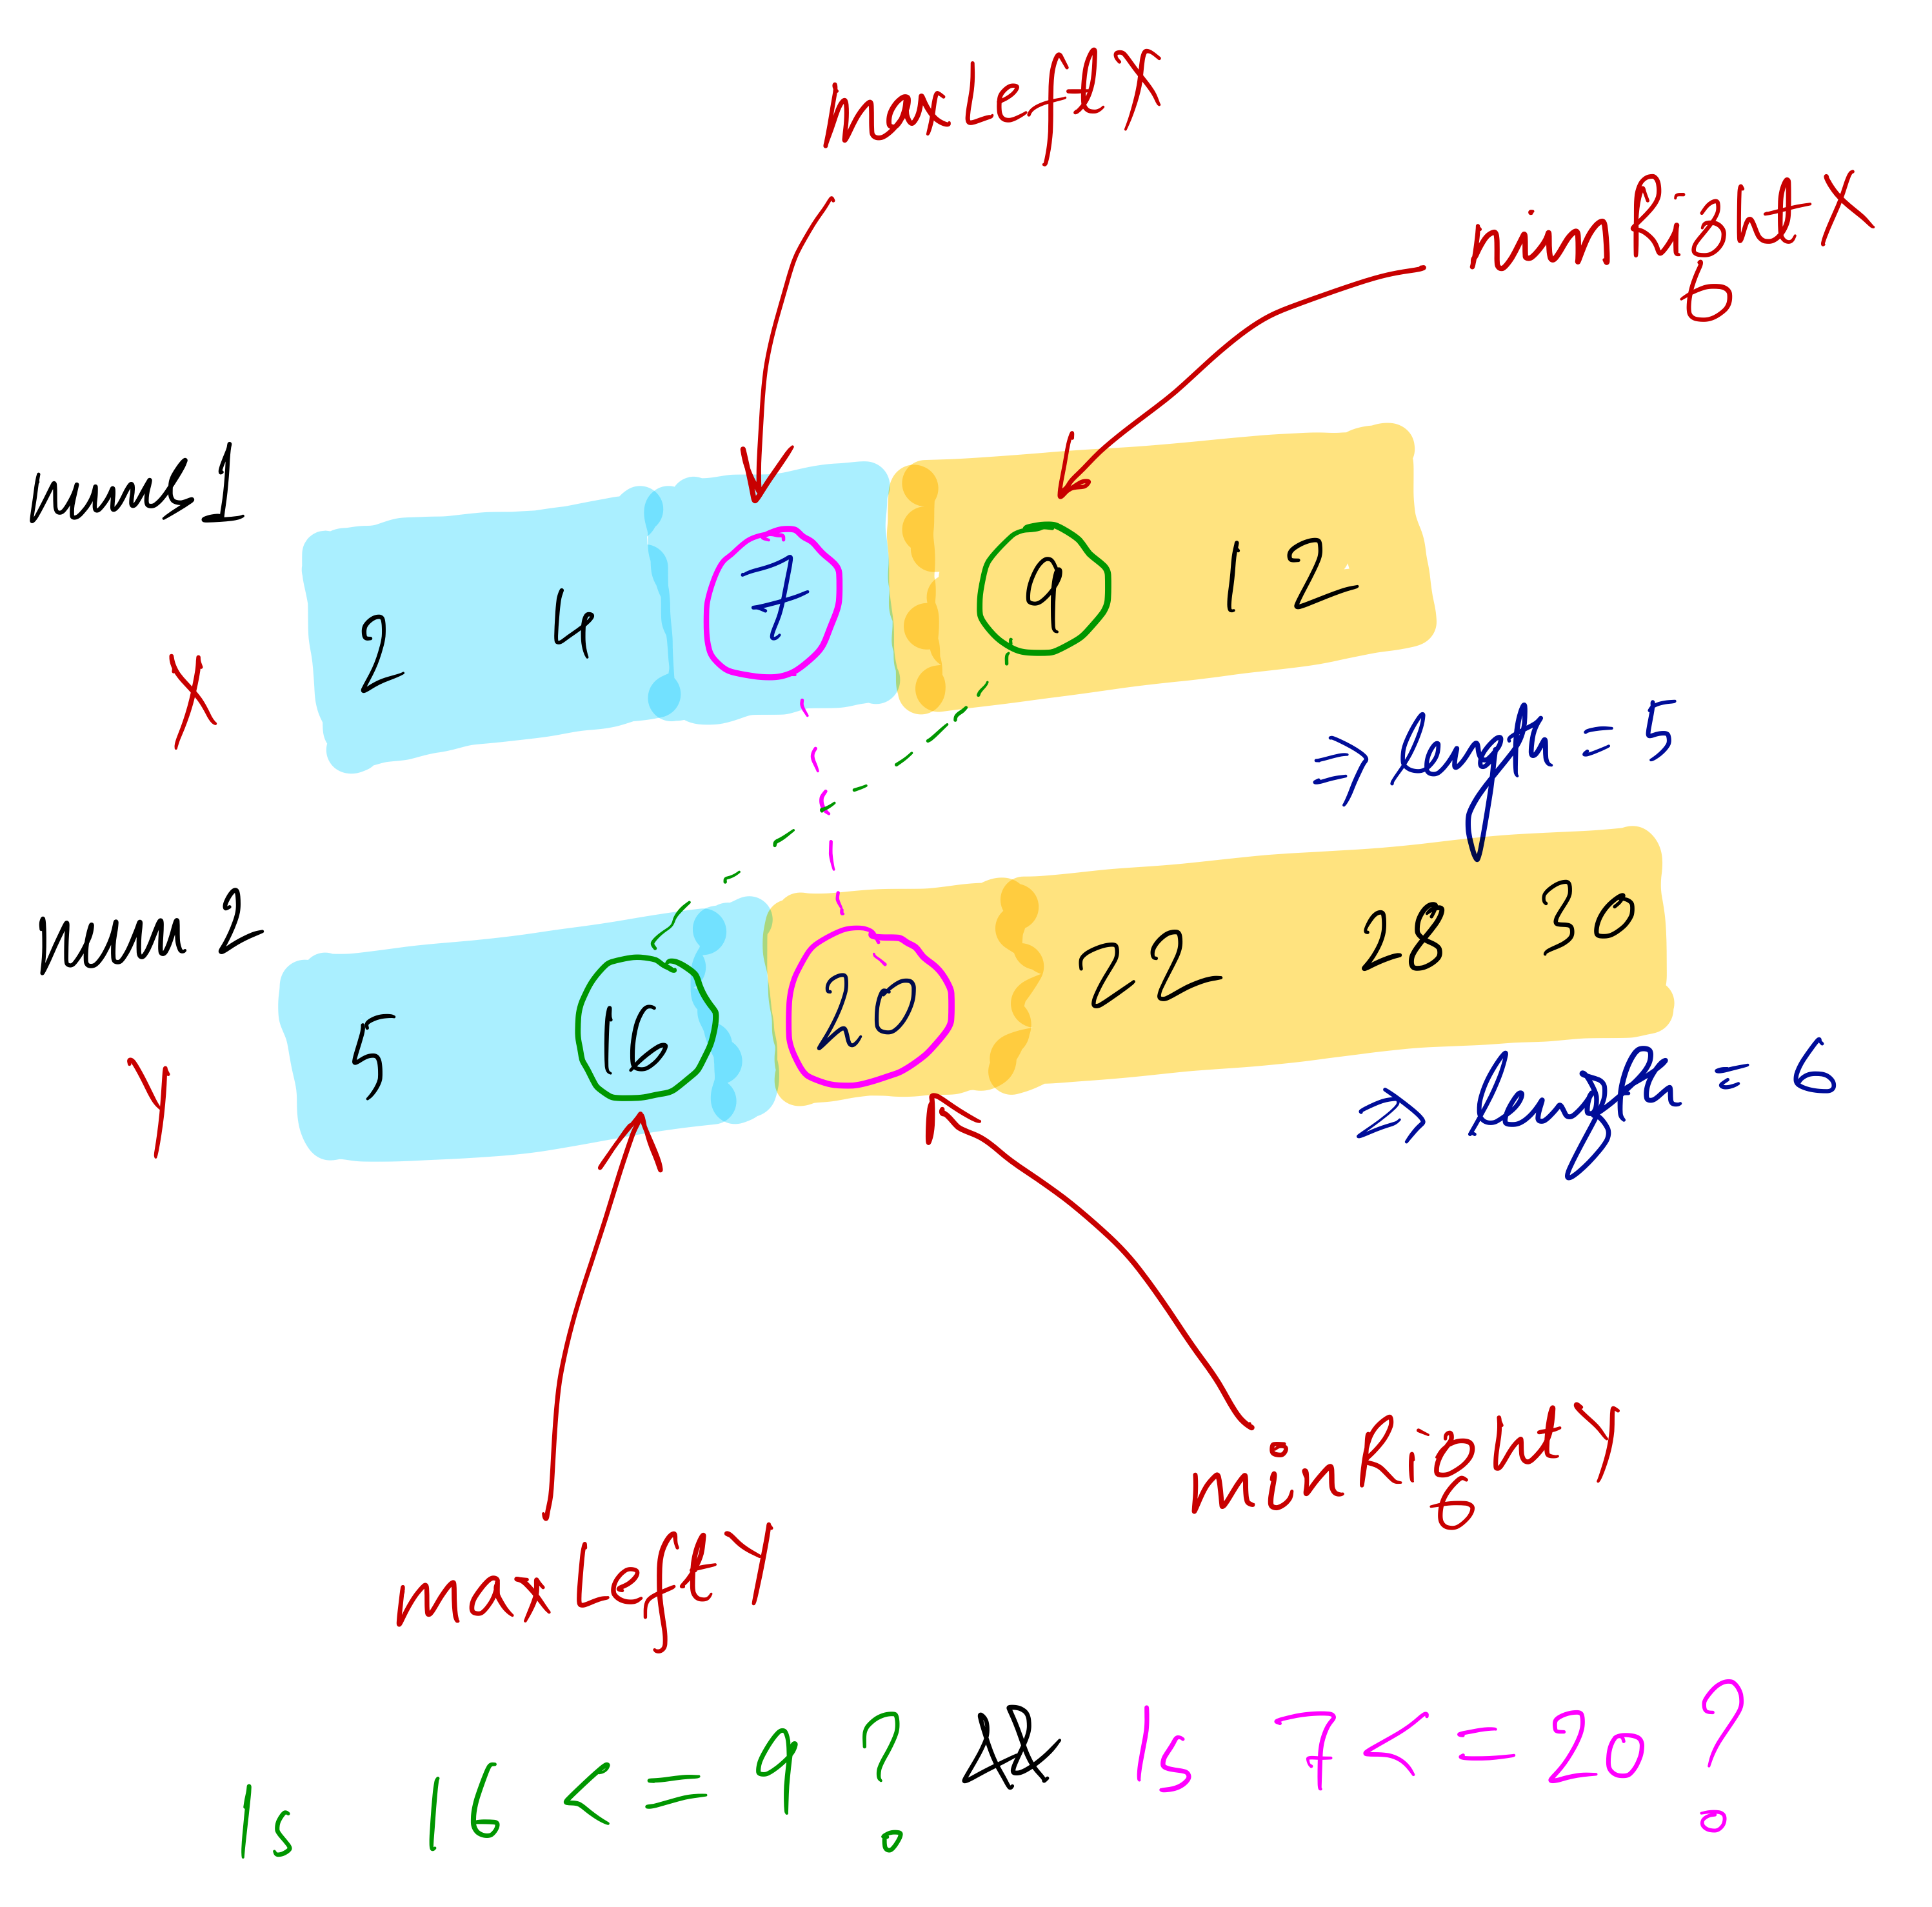 maxLeftX
minRightX
nums1
2 4 7 9 12
X
=> length = 5
num2
5 16 20 22 28 30
Y
=> length = 6
minRightY
maxLeftY
Is 16 <= 9 ? && Is 7 <= 20 ?